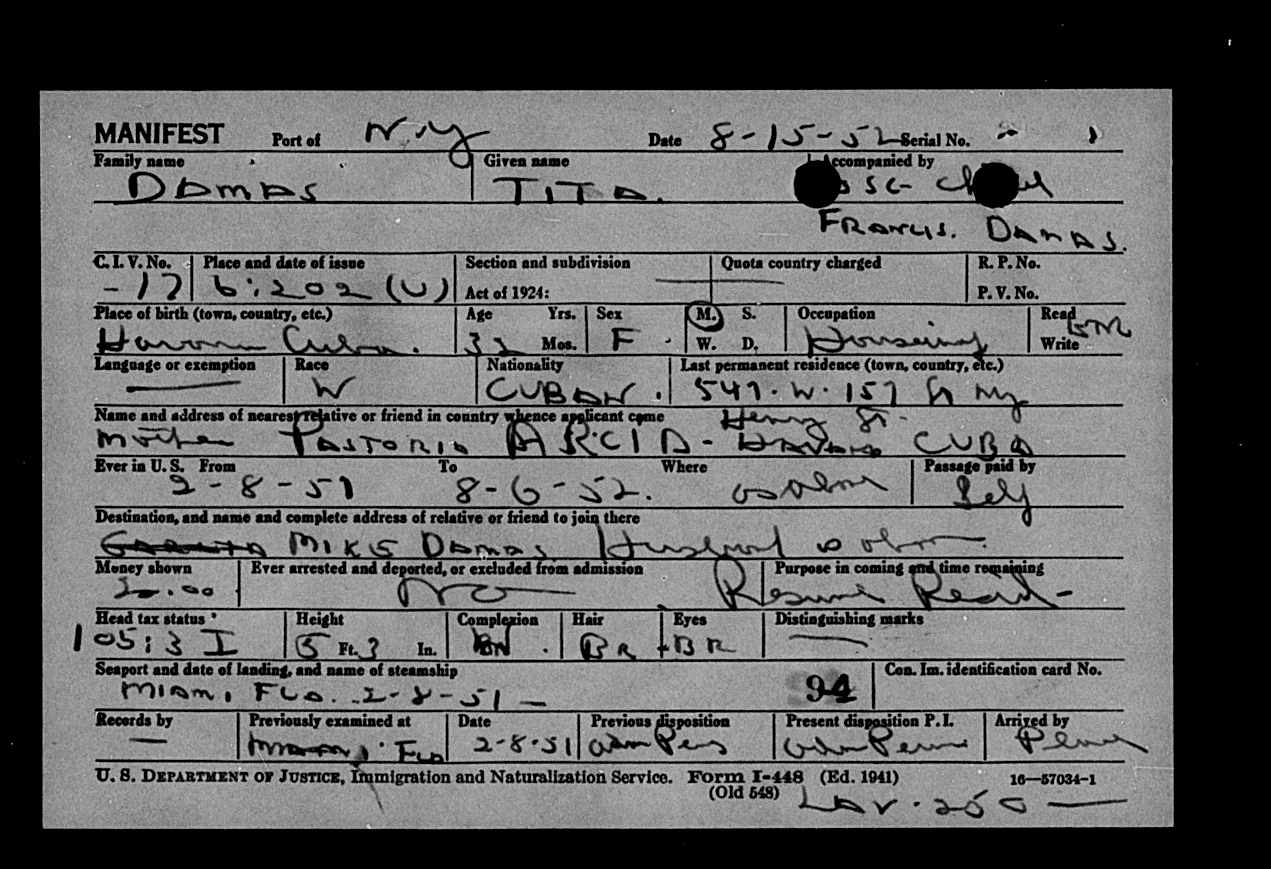 MANIFEST Port of N.Y Date 8-15-52 Serial No.
Family name Given name Accompanied by
DAMAS TITA.
FRANCIS. DAMAS.
C.I.V. No. Place and date of issue Section and subdivision Quota country charged R. P. No.
-17 6:202 (U) Act of 1924: P. V. No.
Place of birth (town, country, etc.) Age Yrs. Sex M. S. Occupation Read
Havana Cuba. 32 Mos. F W. D. Write
Language or exemption Race Nationality Last permanent residence (town, country, etc.)
W CUBAN. 547. W. 157 St NY
Name and address of nearest relative or friend in country whence applicant came Henry St.
Mother PASTORIA ARCIA - HAVANA CUBA
Ever in U. S. From To Where Passage paid by
2-8-51 8-6-52. as above Self
Destination, and name and complete address of relative or friend to join there
MIKE DAMAS Husband as above.
Money shown Ever arrested and deported, or excluded from admission Purpose in coming and time remaining
20.00 No Resume Resid-
Head tax status Height Complexion Hair Eyes Distinguishing marks
105:3 I 5 Ft. 3 In. BR BR
Seaport and date of landing, and name of steamship Con. Im. identification card No.
MIAMI FLA. 2-8-51 - 94
Records by Previously examined at Date Previous disposition Present disposition P. I. Arrived by
MIAMI FLA 2-8-51 Adm Perm
U. S. DEPARTMENT OF JUSTICE, Immigration and Naturalization Service. FORM I-448 (Ed. 1941) 16—57034-1
(Old 548) LAV. 250